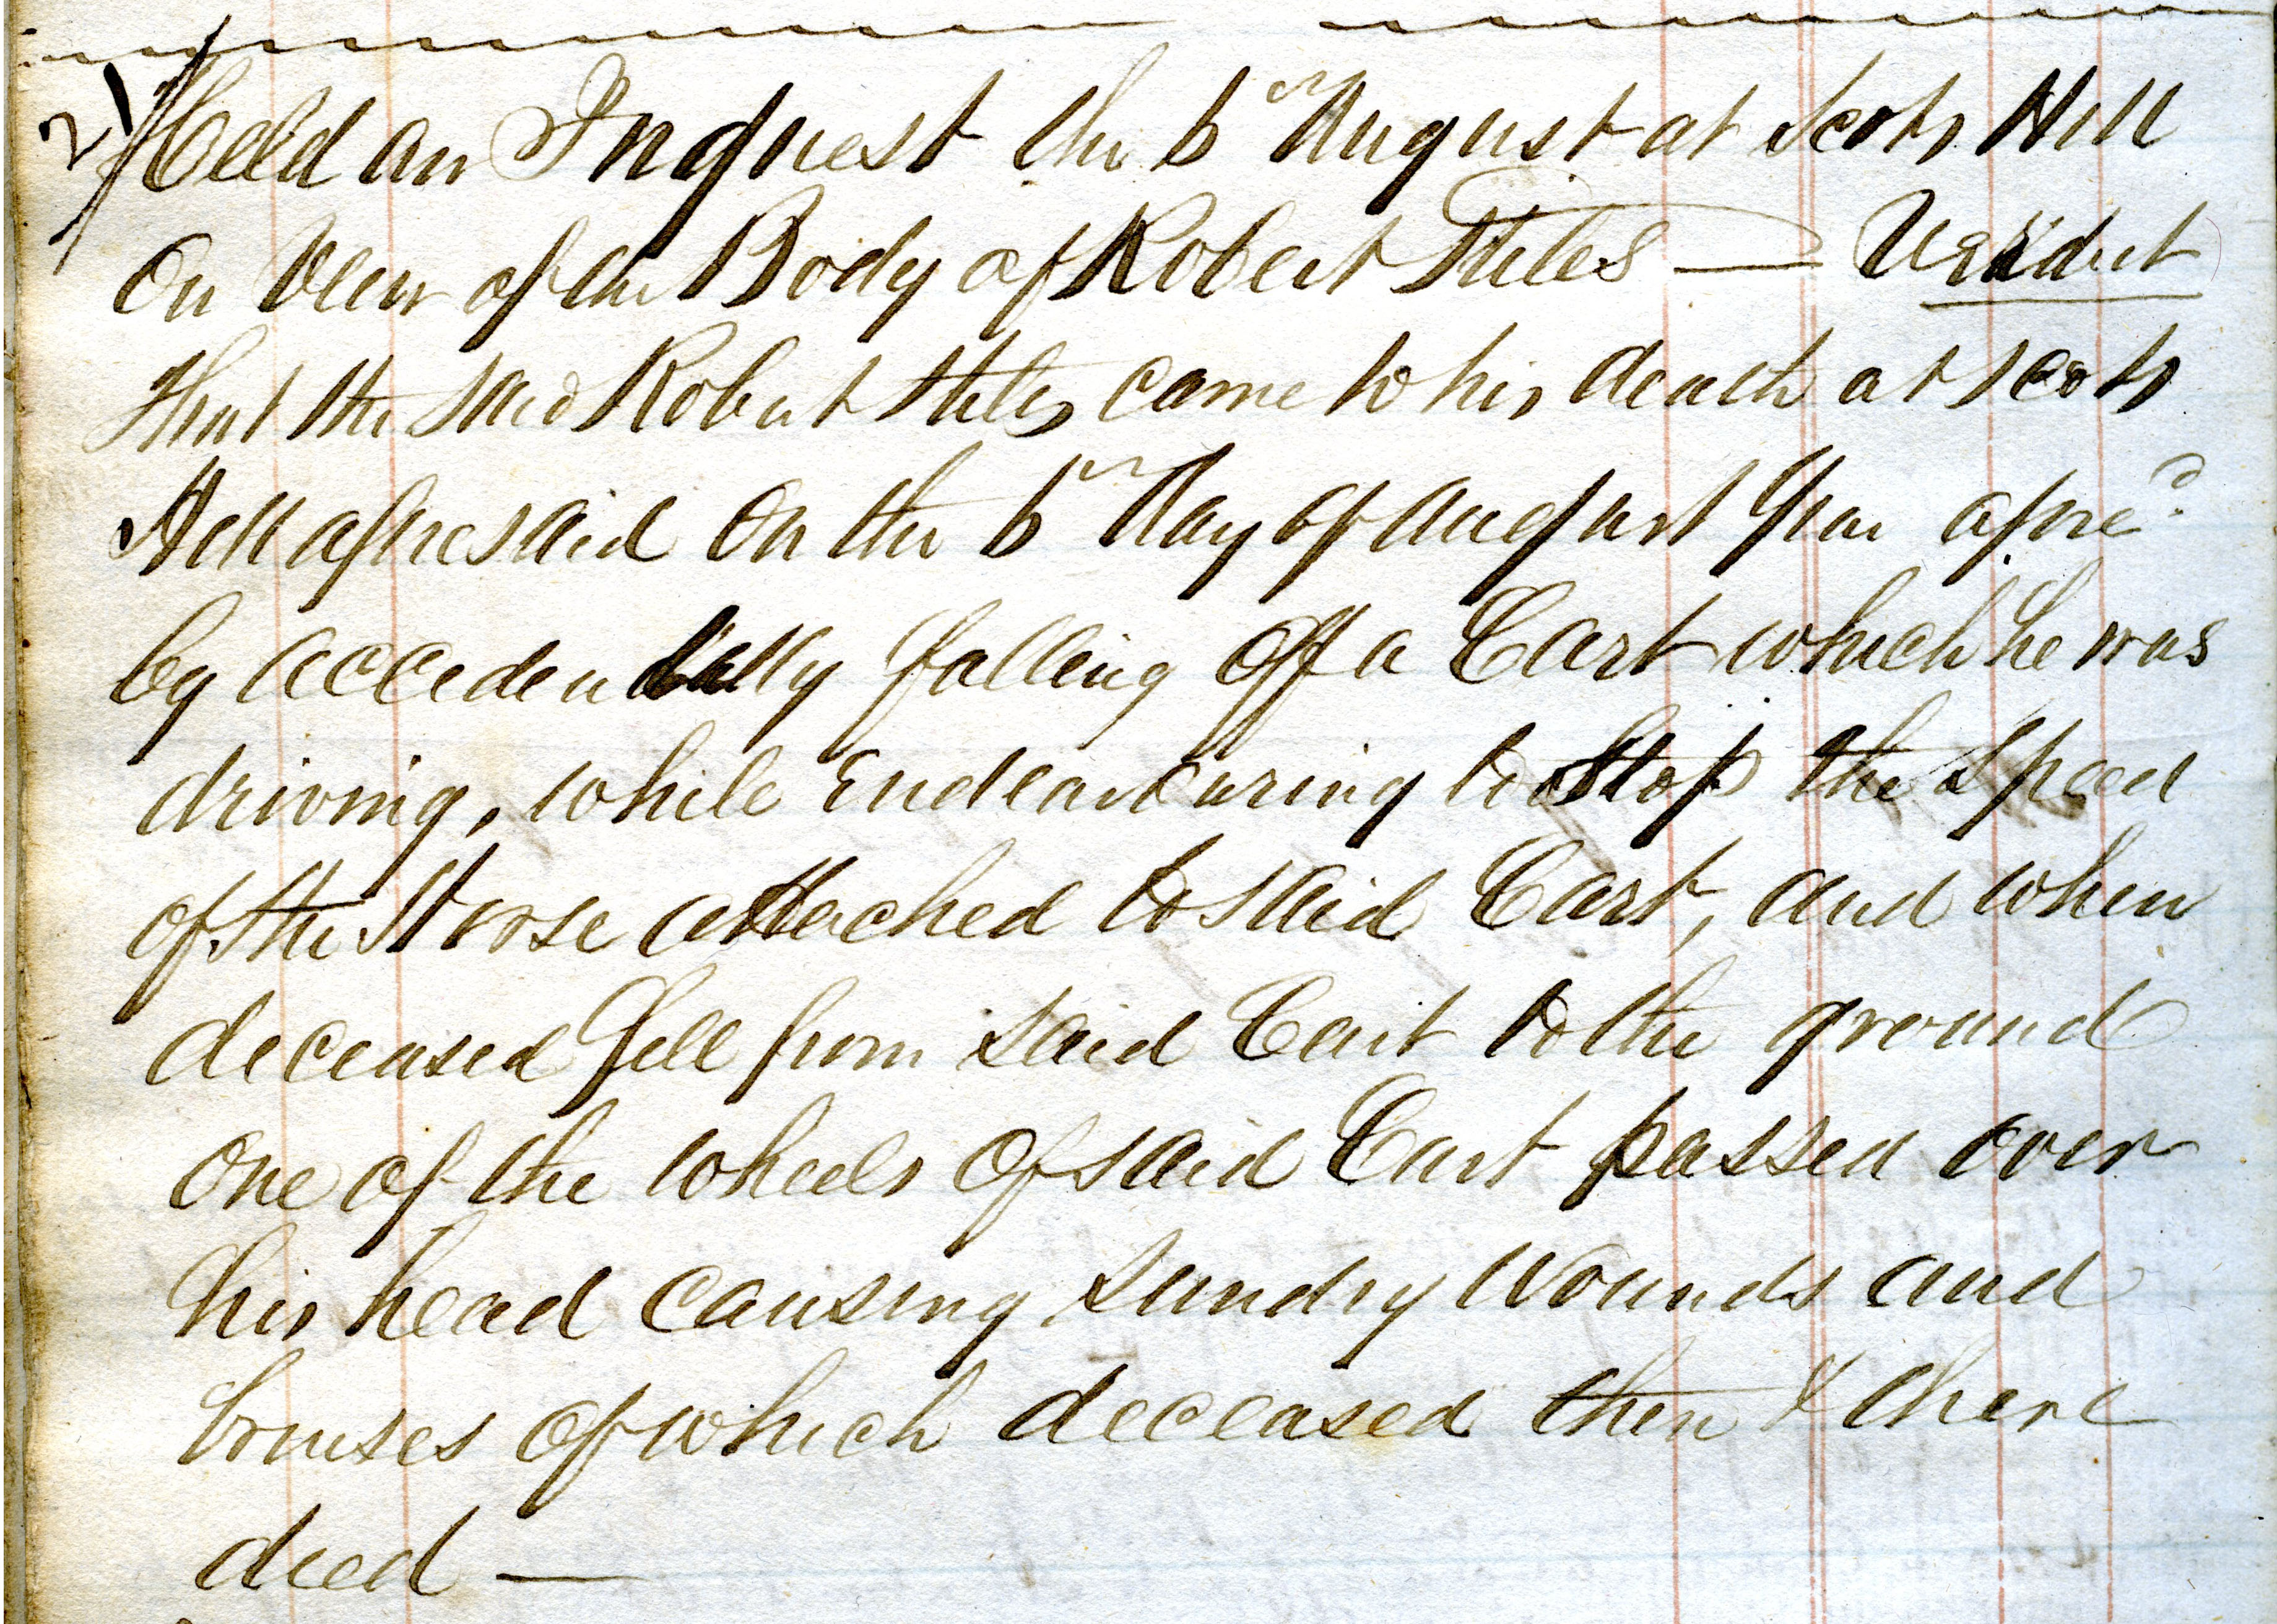 21 Held an Inquest the 6th August at Scots Hill
On View of the Body of Robert Stiles — Verdict
That the said Robert Stiles came to his death at Scots
Hill aforesaid On the 6th Day of August Year afored
by accedentally falling Off a Cart which he was
driving, while Endeavouring to Stop the Speed
of the Horse attached to said Cart, and when
deceased fell from said Cart to the ground
One of the wheels Of said Cart passed over
his head causing sundry Wounds and
bruises Of which deceased then & there
died —